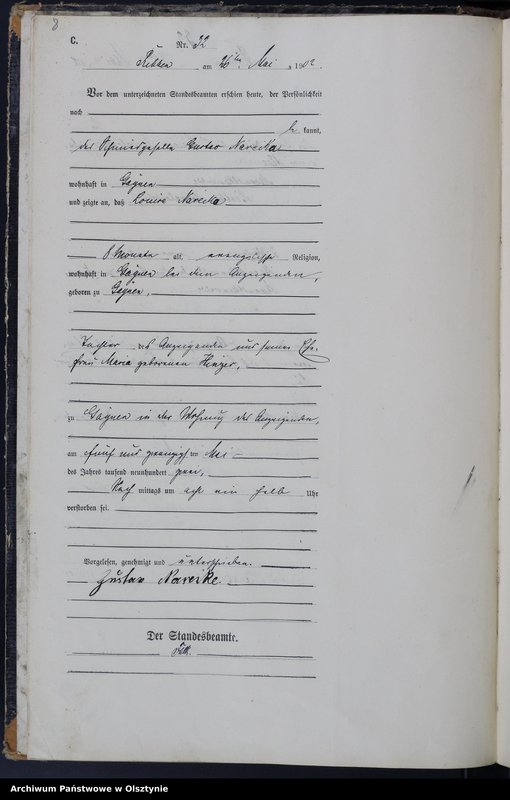 8
C.
Nr. 32
am 26ten Mai 1902
Vor dem unterzeichneten Standesbeamten erschien heute, der Persönlichkeit
nach
be kannt,
der Schmiedgeselle Gustav Nareike
wohnhaft in Gaynen
und zeigte an, daß Louise Nareike
8 Monate alt, evangelischer Religion,
wohnhaft in Gaynen bei dem Anzeigenden,
geboren zu Gaynen,
Tochter des Anzeigenden und seiner Ehe-
frau Maria geborenen
zu Gaynen in der Wohnung des Anzeigenden,
am fünf und zwanzigsten Mai
des Jahres tausend neunhundert zwei,
Nach mittags um acht ein halb Uhr
verstorben sei.
Vorgelesen, genehmigt und unterschrieben.
Gustav Nareike
Der Standesbeamte.
Archiwum Państwowe w Olsztynie